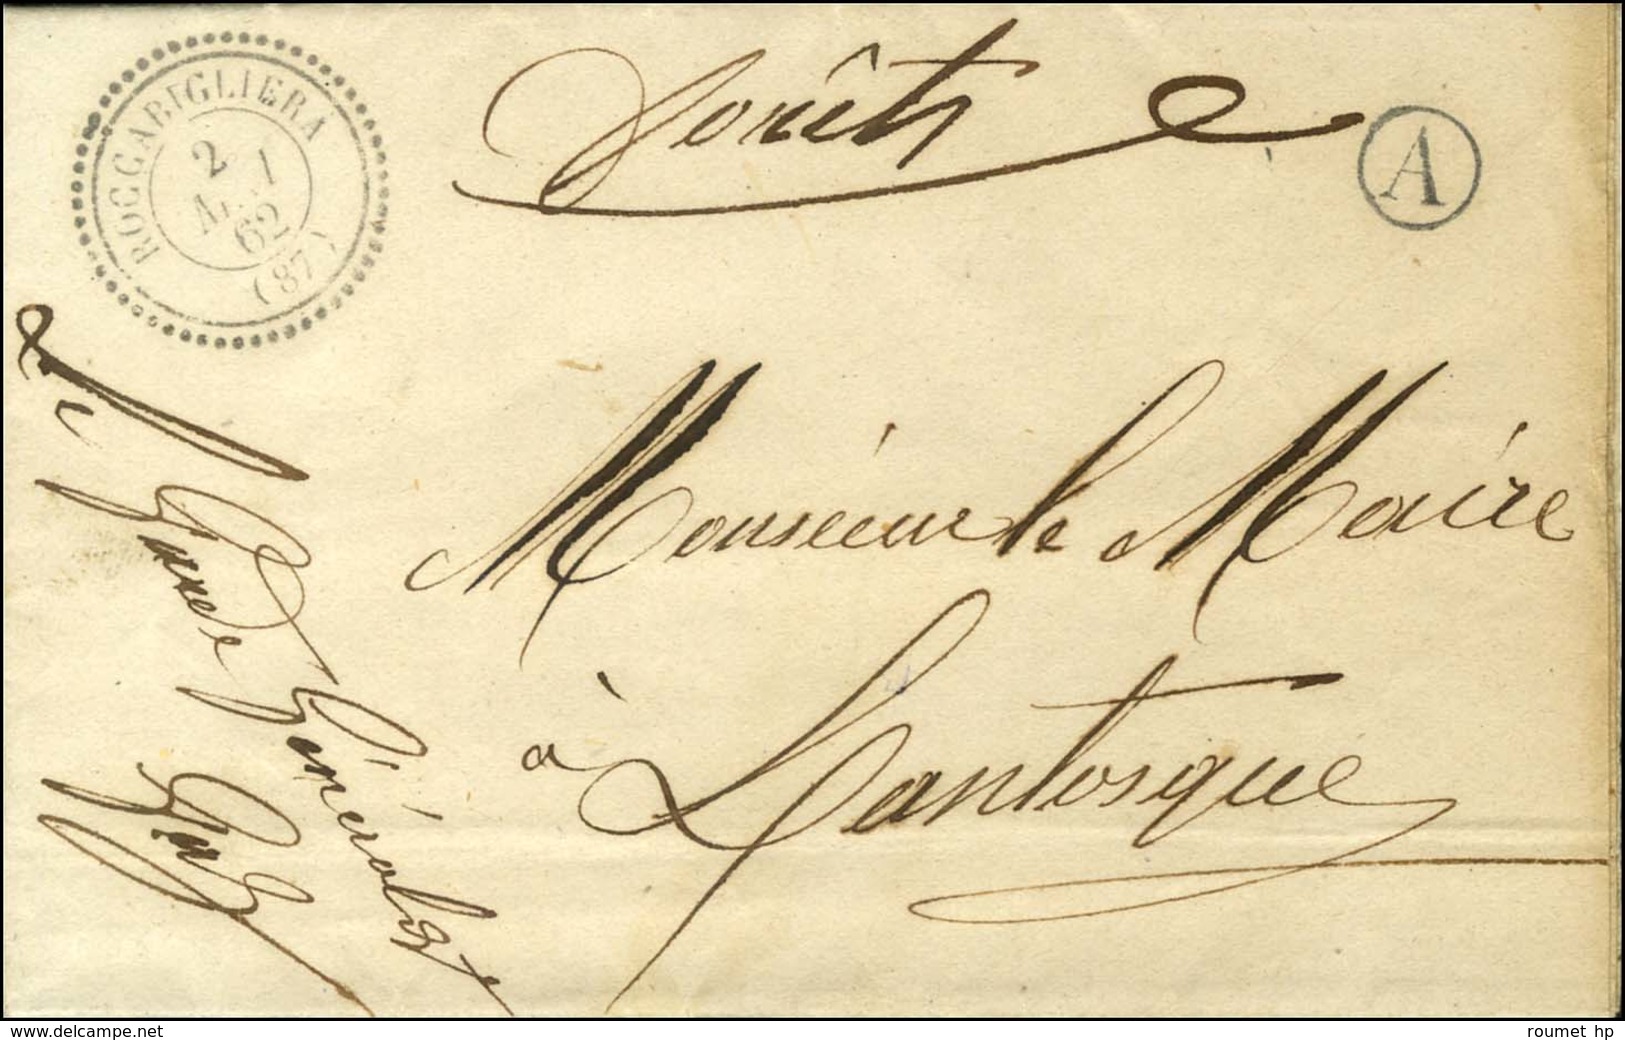 ROCCABIGLIERA
2 1
62
(87)
Forêts
A
Monsieur le Maire
à Lantosque
Le Garde Général
www.delcampe.net
roumet hp